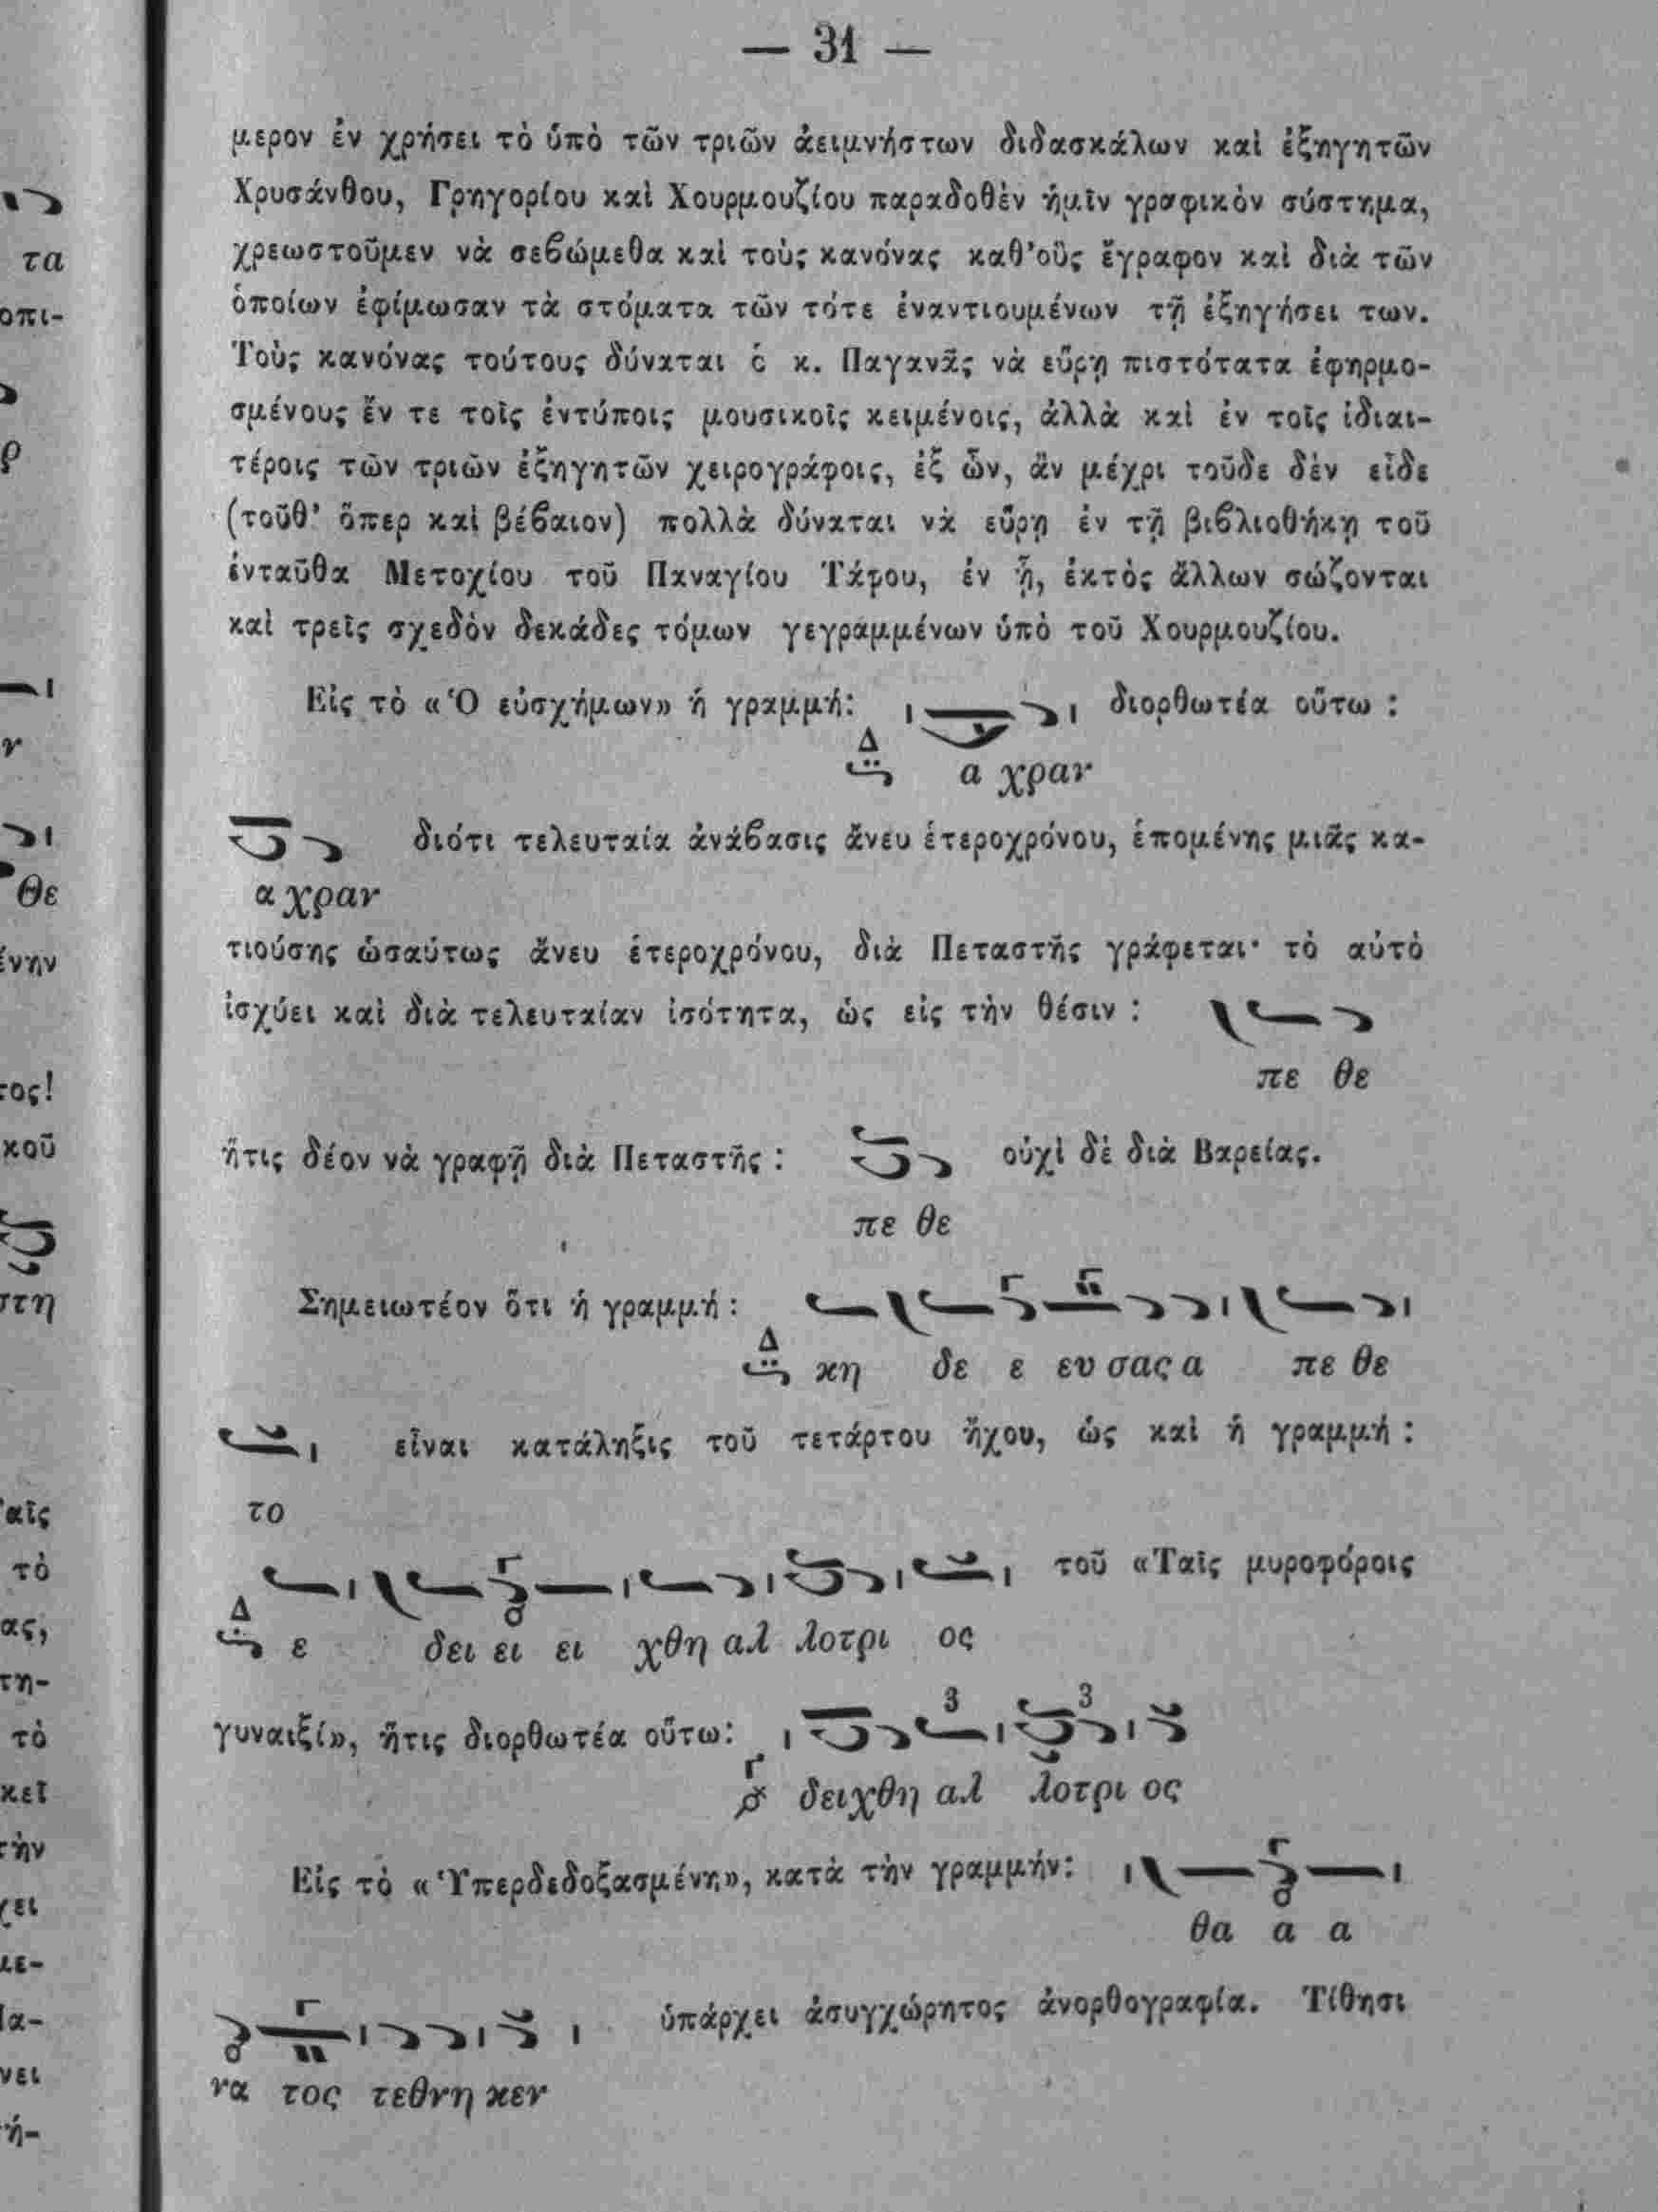 — 31 —
μερον ἐν χρήσει τὸ ὑπὸ τῶν τριῶν ἀειμνήστων διδασκάλων καὶ ἐξηγητῶν
Χρυσάνθου, Γρηγορίου καὶ Χουρμουζίου παραδοθὲν ἡμῖν γραφικὸν σύστημα,
χρεωστοῦμεν νὰ σεβώμεθα καὶ τοὺς κανόνας καθ' οὓς ἔγραφον καὶ διὰ τῶν
ὁποίων ἐφίμωσαν τὰ στόματα τῶν τότε ἐναντιουμένων τῇ ἐξηγήσει των.
Τοὺς κανόνας τούτους δύναται ὁ κ. Παγανᾶς νὰ εὕρῃ πιστότατα ἐφηρμο-
σμένους ἔν τε τοῖς ἐντύποις μουσικοῖς κειμένοις, ἀλλὰ καὶ ἐν τοῖς ἰδιαι-
τέροις τῶν τριῶν ἐξηγητῶν χειρογράφοις, ἐξ ὧν, ἂν μέχρι τοῦδε δὲν εἶδε
(τοῦθ' ὅπερ καὶ βέβαιον) πολλὰ δύναται νὰ εὕρῃ ἐν τῇ βιβλιοθήκῃ τοῦ
ἐνταῦθα Μετοχίου τοῦ Παναγίου Τάφου, ἐν ᾗ, ἐκτὸς ἄλλων σώζονται
καὶ τρεῖς σχεδὸν δεκάδες τόμων γεγραμμένων ὑπὸ τοῦ Χουρμουζίου.
Εἰς τὸ «Ὁ εὐσχήμων» ἡ γραμμή: διορθωτέα οὕτω :
Δ α χραν
διότι τελευταία ἀνάβασις ἄνευ ἑτεροχρόνου, ἑπομένης μιᾶς κα-
α χραν
τιούσης ὡσαύτως ἄνευ ἑτεροχρόνου, διὰ Πεταστῆς γράφεται· τὸ αὐτὸ
ἰσχύει καὶ διὰ τελευταίαν ἰσότητα, ὡς εἰς τὴν θέσιν :
πε θε
ἥτις δέον νὰ γραφῇ διὰ Πεταστῆς : οὐχὶ δὲ διὰ Βαρείας.
πε θε
Σημειωτέον ὅτι ἡ γραμμή :
Δ κη δε ε ευ σας α πε θε
εἶναι κατάληξις τοῦ τετάρτου ἤχου, ὡς καὶ ἡ γραμμή :
το
τοῦ «Ταῖς μυροφόροις
Δ ε δει ει ει χθη αλ λοτρι ος
γυναιξί», ἥτις διορθωτέα οὕτω: 3 3
Γ δειχθη αλ λοτρι ος
Εἰς τὸ «Ὑπερδεδοξασμένη», κατὰ τὴν γραμμήν:
θα α α
ὑπάρχει ἀσυγχώρητος ἀνορθογραφία. Τίθησι
να τος τεθνη κεν